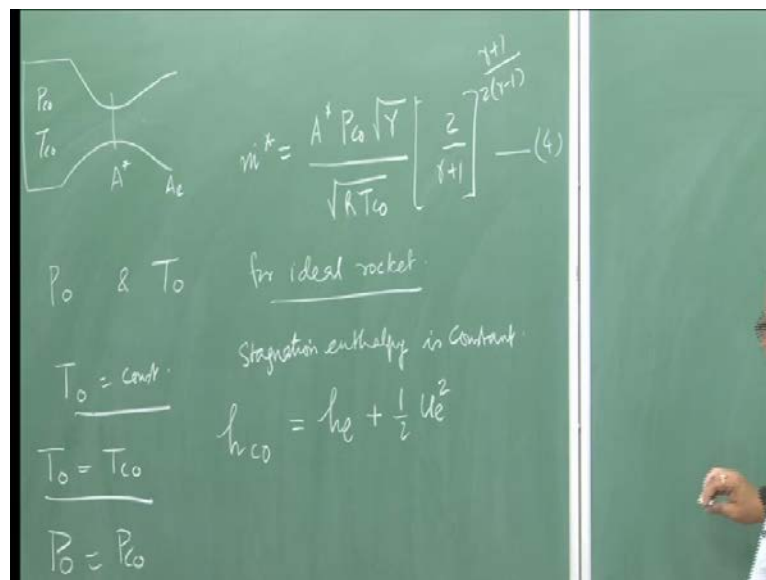 Pco
Tco
A*
Ae
ṁ* = A* Pco √γ / √RTco [2 / γ+1]^(γ+1 / 2(γ-1)) — (4)
Po & To for ideal rocket.
Stagnation enthalpy is Constant.
To = Const.
hco = he + 1/2 Ue²
To = Tco
Po = Pco